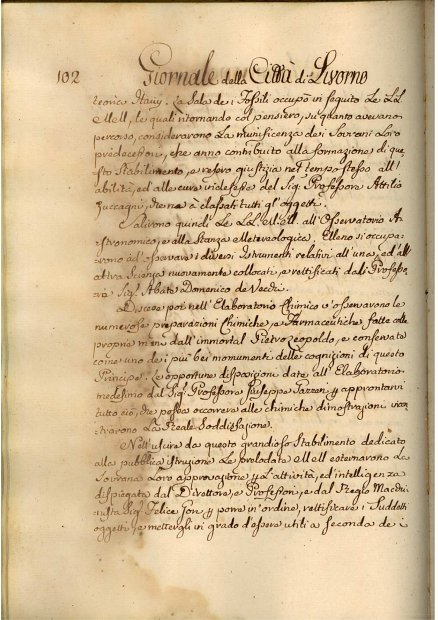 102 Giornale della Città di Livorno
teorica Haüy. La Sala dei Fossili occupò in seguito Le LL.
MM., le quali ritornando col pensiero, su quanto avevano
percorso, considerarono La munificenza dei Sovrani Loro
predecessori, che anno contribuito alla formazione di que
sto Stabilimento, e resero giustizia nel tempo stesso all'
abilità, ed alle cure indefesse del Sig. Professore Attilio
Zuccagni, che ne à classati tutti gl'oggetti.
Salirono quindi Le LL. MM. all'Osservatorio A-
stronomico, e alla Stanza Metereologica. Elleno si occupa-
rono ad osservare i diversi Istrumenti relativi all'una, ed all'
altra Scienza nuovamente collocati, e rettificati dal Professo-
re Sig. Abate Domenico de Vecchi.
Discese poi nell'Elaboratorio Chimico s'osservarono le
numerose preparazioni Chimiche, e Farmaceutiche, fatte colle
proprie mani dall'immortal Pietro Leopoldo, e conservate
come uno dei più bei monumenti delle cognizioni di questo
Principe. Le opportune disposizioni date all'Elaboratorio
medesimo dal Sig. Professore Giuseppe Gazzeri approntarvi
tutto ciò, che possa occorrere alle chimiche dimostrazioni
strarono La Reale Soddisfazione.
Nell'uscire da questo grandioso Stabilimento dedicato
alla pubblica istruzione Le prelodate MM. esternarono La
Sovrana Loro approvazione L'attività, ed intelligenza
dispiegata dal Direttore, e Professori, e dal Regio Macchi
nista Sig. Felice Gori, porre in ordine, rettificare i Suddetti
oggetti, e mettergli in grado d'essere utili a seconda dei